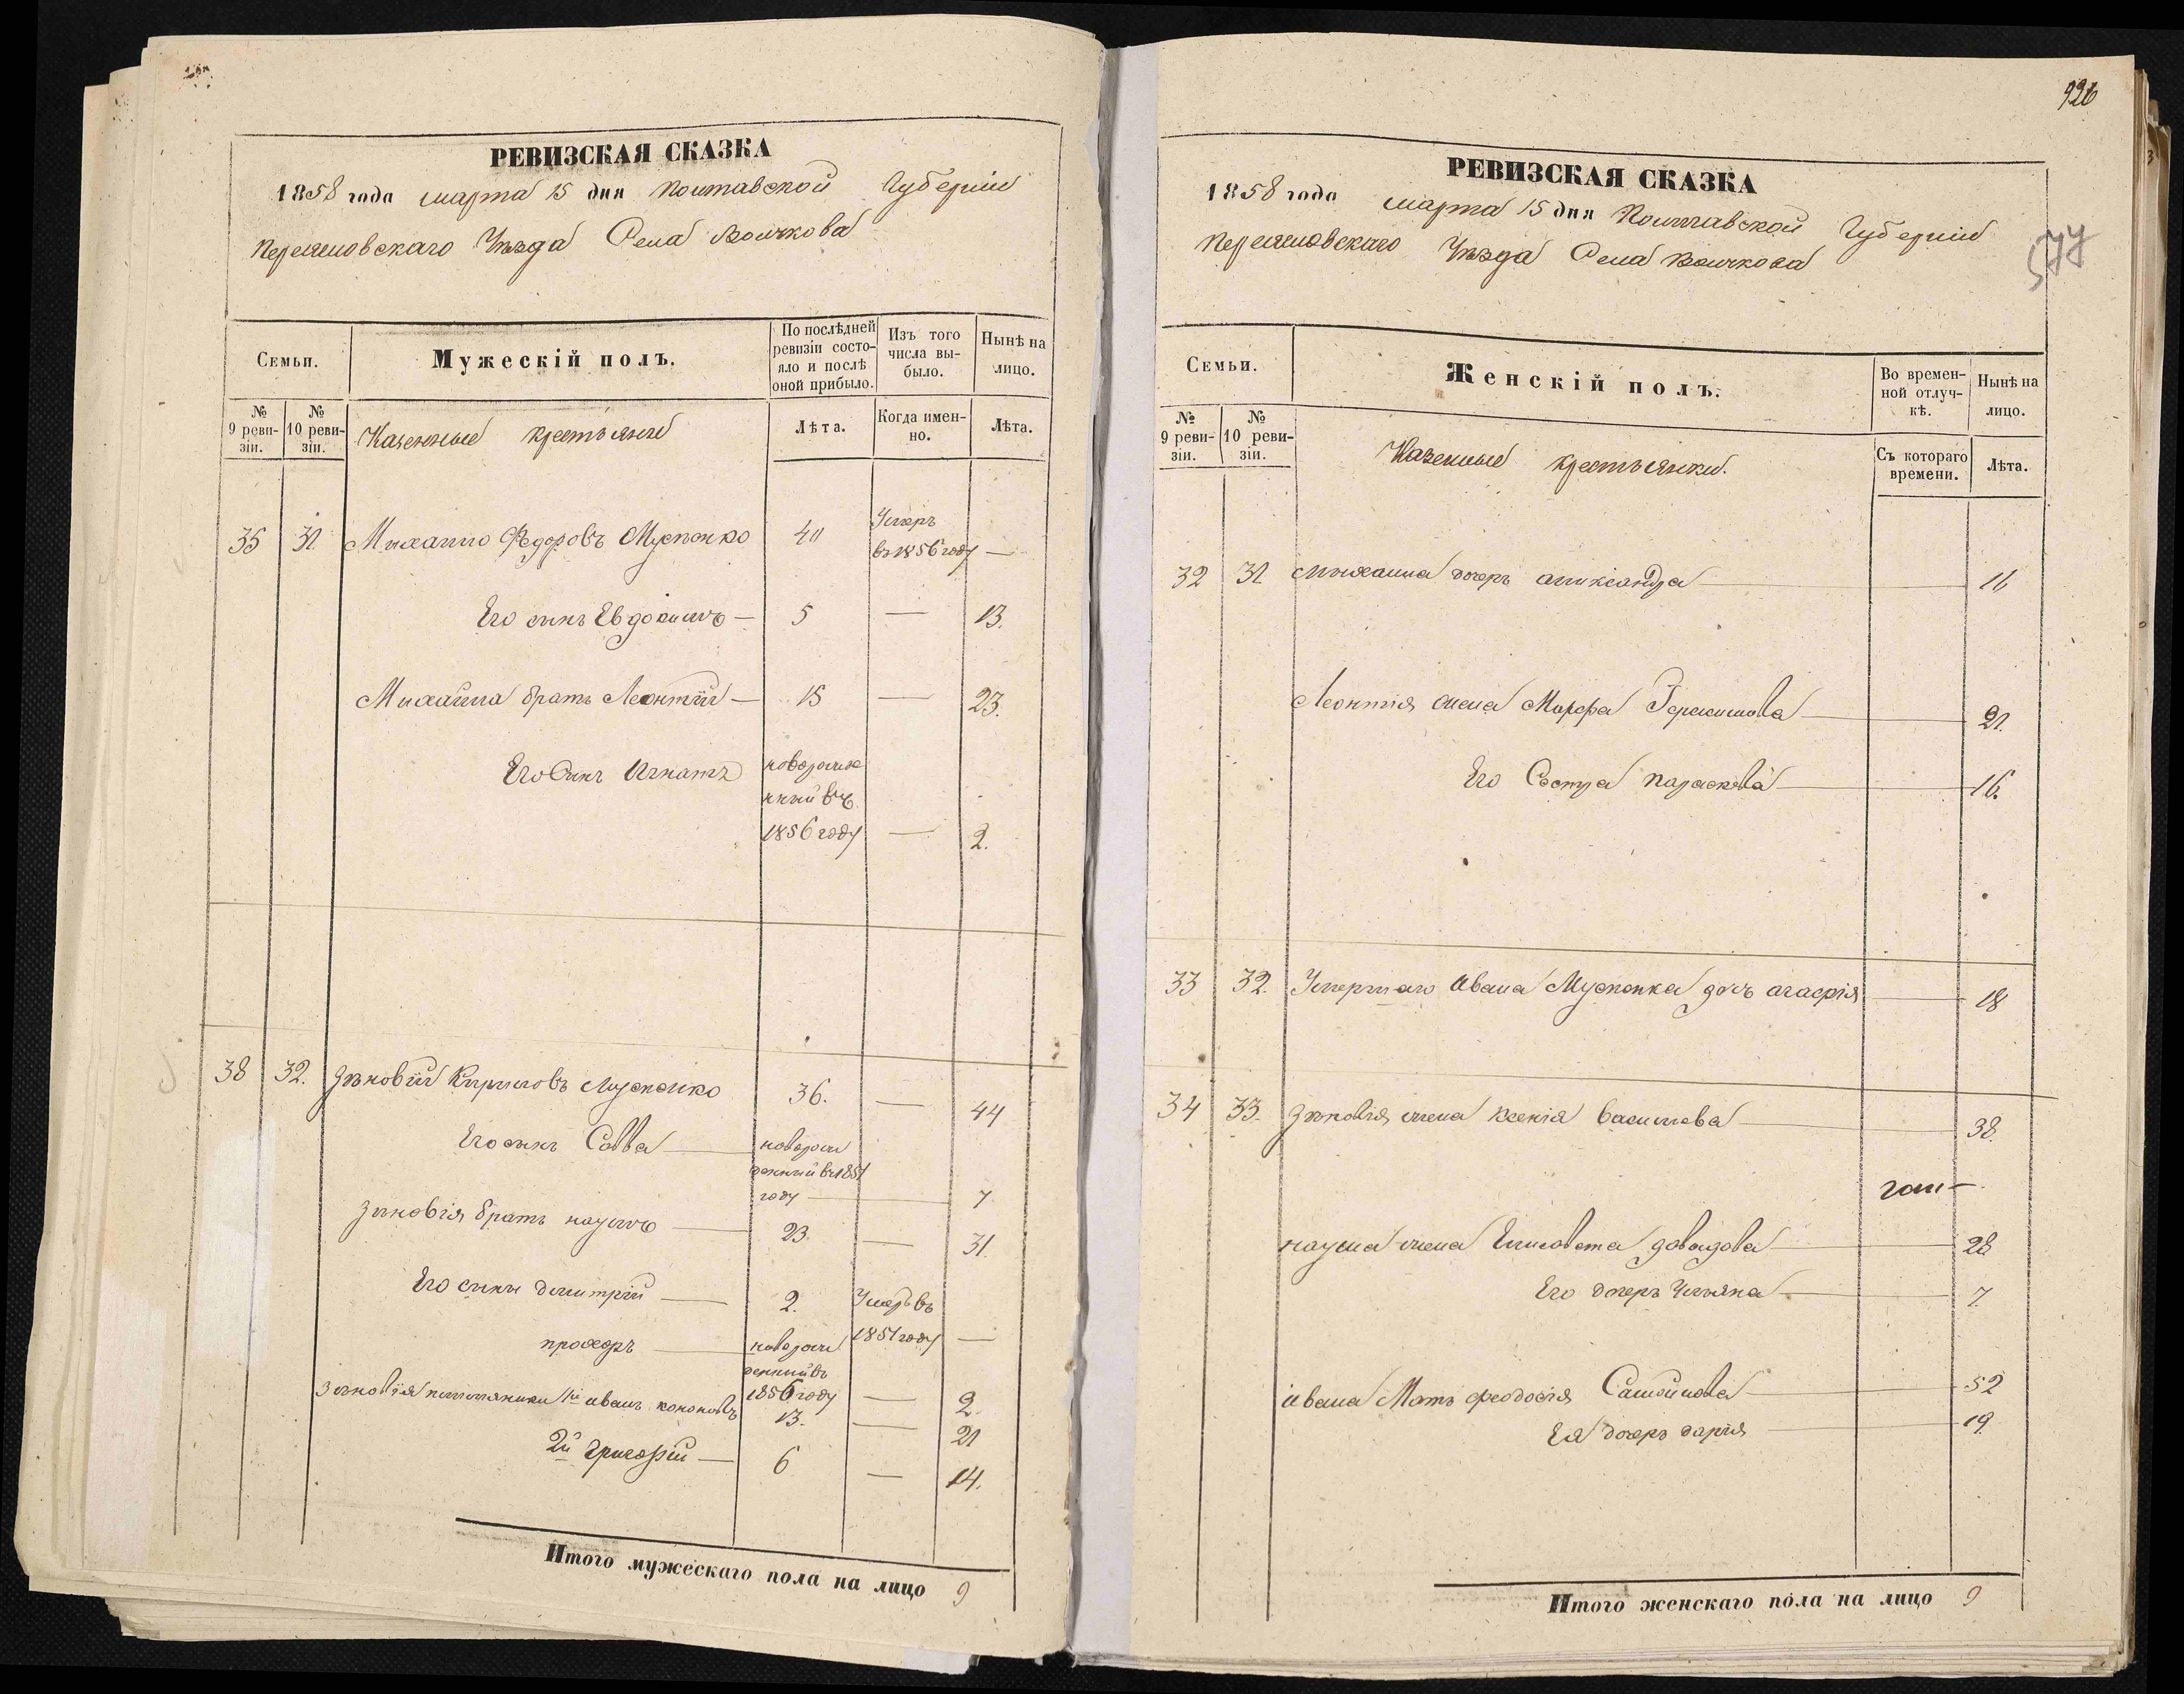 РЕВИЗСКАЯ СКАЗКА
1858 года марта 15 дня Полтавской Губернии
Переяславскаго Уѣзда Села
Семьи.
Мужескій полъ.
По послѣдней ревизіи состо-яло и послѣ оной прибыло.
Изъ того числа вы-было.
Нынѣ на лицо.
№ 9 реви-зіи.
№ 10 реви-зіи.
Казенные крестьяне
Лѣта.
Когда имен-но.
Лѣта.
35 31 Михайло Федоровъ 40 Умеръ въ 1856 году —
Его сынъ Евдокимъ — 5 — 13.
Михайла братъ Леонтій — 15 — 23.
Его Сынъ Игнатъ новорожд
нный въ
1856 году — 2.
38 32. Зѣновій Кириловъ 36. — 44
Его сынъ Савва новорож
денный в 1851
году 7
Зиновія братъ наумъ — 23. — 31.
Его сыны Димитрій — 2. Умеръ въ
1851 году —
прохоръ — новорож
денный въ
1856 году — 2.
Зиновія племянники 1й иванъ кононовъ 13. — 21
2й григорій — 6 — 14.
Итого мужескаго пола на лицо 9
926
577
РЕВИЗСКАЯ СКАЗКА
1858 года марта 15 дня Полтавской Губернии
Переяславскаго Уѣзда Села
Семьи.
Женскій полъ.
Во времен-ной отлуч-кѣ.
Нынѣ на лицо.
№ 9 реви-зіи.
№ 10 реви-зіи.
Казенные крестьянки.
Съ котораго времени.
Лѣта.
32 31 Михайла дочерь александра — 11
Леонтія жена Марфа Герасимова — 21.
Его Сестра параскева — 16.
33 32. Умершаго Ивана дочь агафія — 18
34 33. Зѣновія жена Ксенія Василиева — 38.
наума жена Елисавета давидова — 28
Его дочерь Ульяна — 7.
ивана Мать феодосія Самойлова — 52
Ея дочерь дарія — 19.
Итого женскаго пола на лицо 9